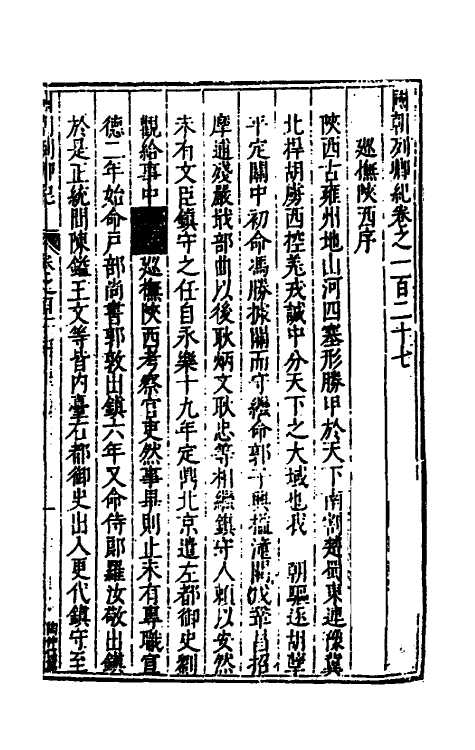 國朝列卿紀卷之一百二十七
巡撫陝西序
陝西古雍州地山河四塞形勝甲於天下南割楚蜀東連豫冀
北捍胡虜西控羌戎誠中分天下之大域也我 朝驅逐胡孽
平定關中初命馮勝據關而守繼命郭子興搤潼關以
摩逋殘嚴戢部曲以後耿炳文耿忠等相繼鎮守人賴以安然
未有文臣鎮守之任自永樂十九年定鼎北京遣左都御史劉
觀給事中 巡撫陝西考察官吏然事畢則止未有專職宣
德二年始命戶部尚書郭敦出鎮六年又命侍郎羅汝敬出鎮
於是正統間陳鎰王文等皆內臺右都御史出入更代鎮守至